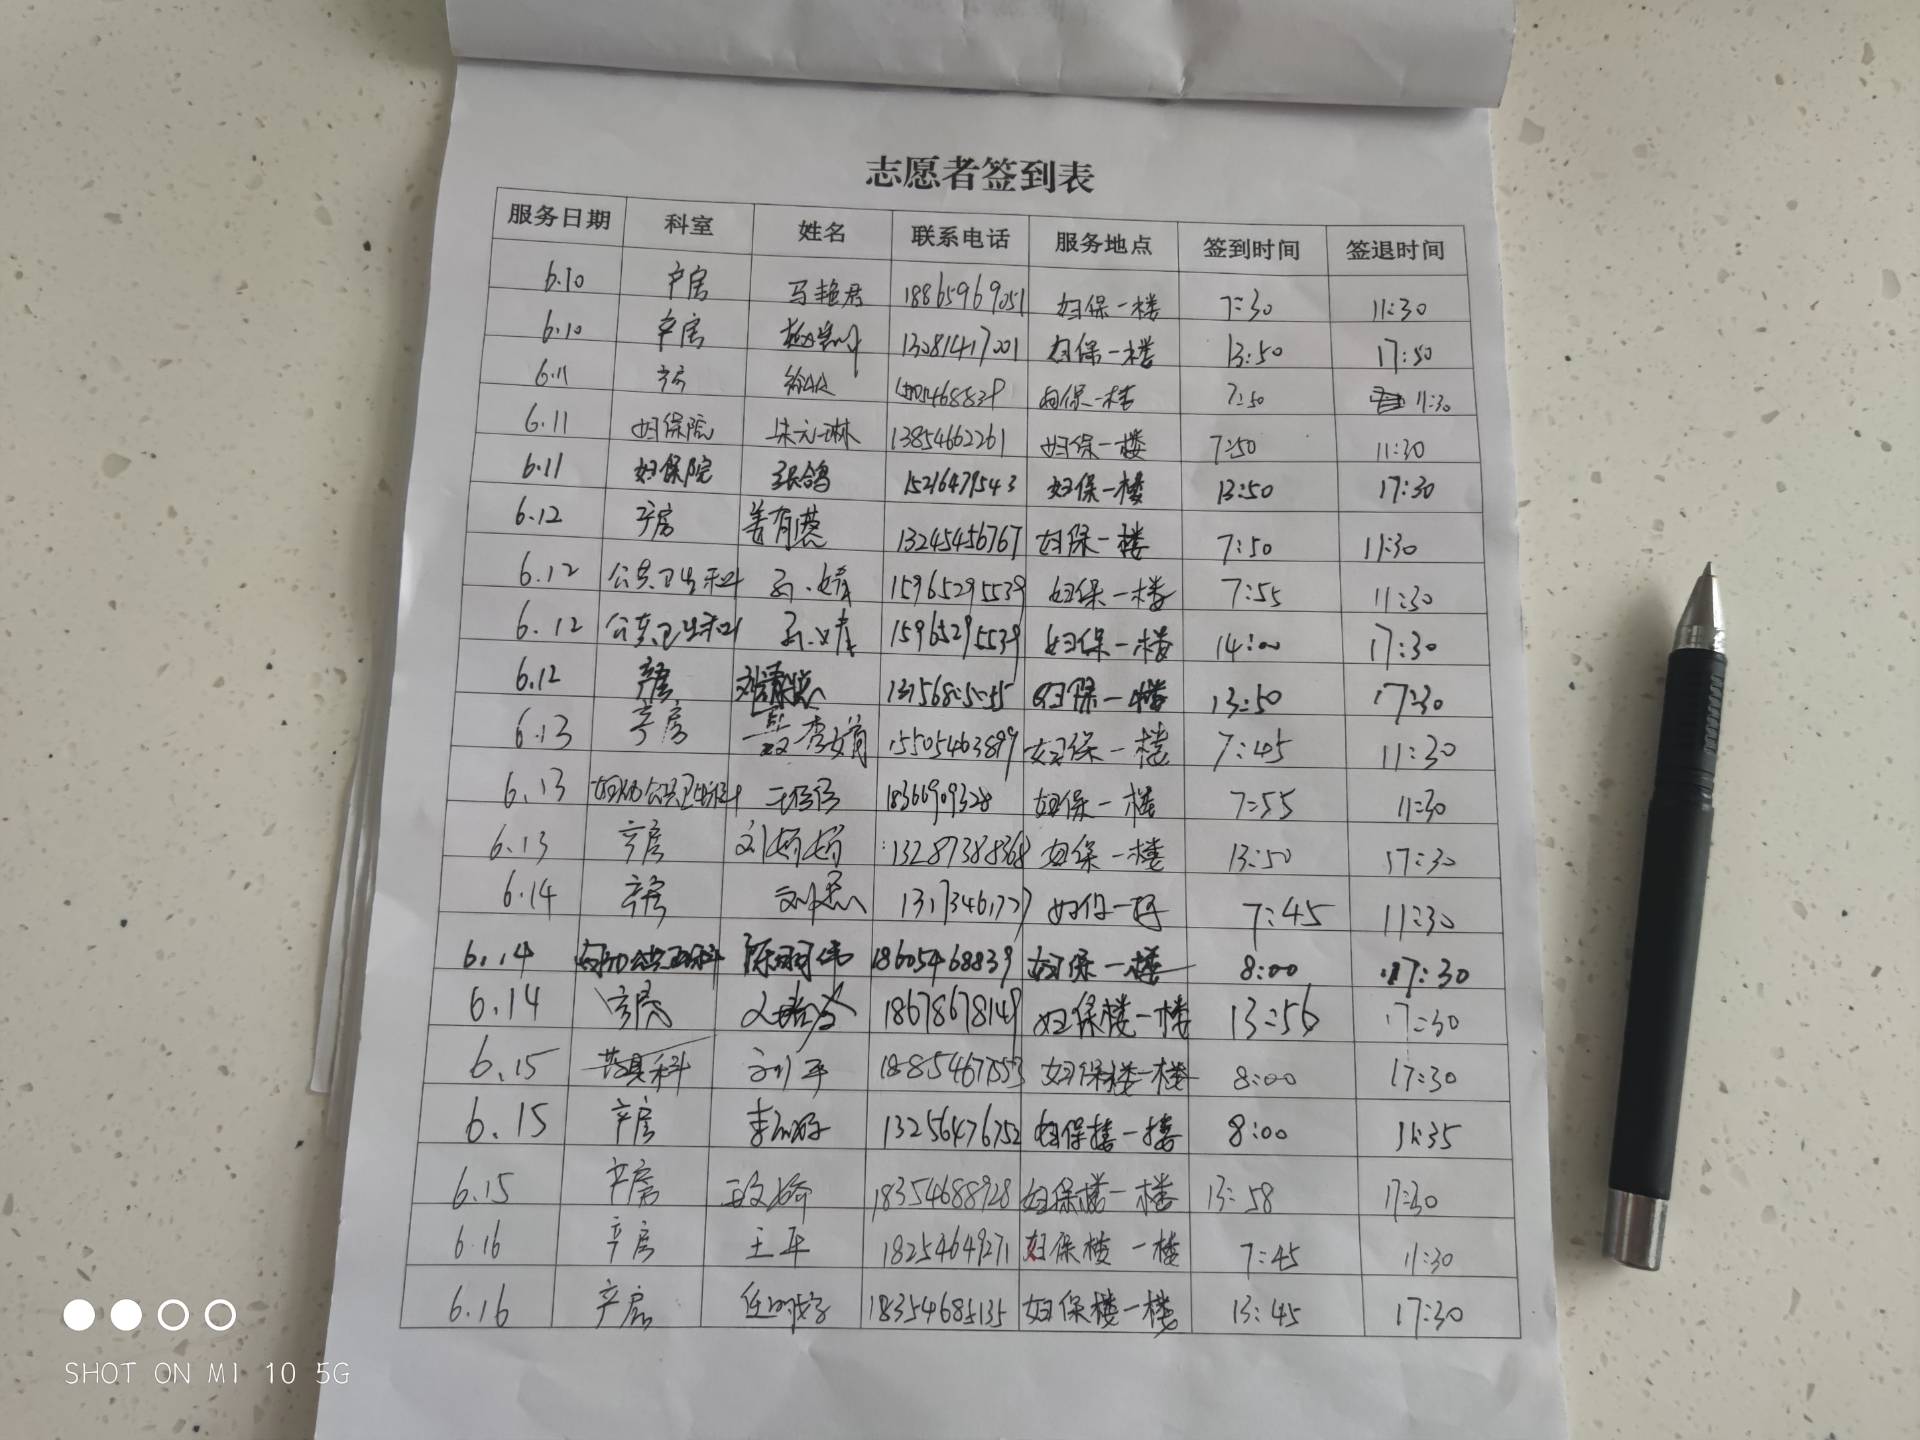 志愿者签到表
服务日期 科室 姓名 联系电话 服务地点 签到时间 签退时间
6.10 产房 马艳君 18865969051 妇保一楼 7:30 11:30
6.10 产房 13081417001 妇保一楼 13:50 17:30
6.11 产房 妇保一楼 7:50 11:30
6.11 妇保院 朱元琳 13854662261 妇保一楼 7:50 11:30
6.11 妇保院 张鸽 15216479543 妇保一楼 13:50 17:30
6.12 产房 姜有慧 13245456767 妇保一楼 7:50 11:30
6.12 公共卫生科 15965295539 妇保一楼 7:55 11:30
6.12 公共卫生科 15965295539 妇保一楼 14:00 17:30
6.12 产房 妇保一楼 13:50 17:30
6.13 产房 李婧 15505463899 妇保一楼 7:45 11:30
6.13 妇幼公共卫生科 18366909328 妇保一楼 7:55 11:30
6.13 产房 刘娇娇 13287388368 妇保一楼 13:50 17:30
6.14 产房 妇保一楼 7:45 11:30
6.14 妇幼公共卫生科 陈丽伟 18605468839 妇保一楼 8:00 17:30
6.14 产房 18678678149 妇保楼一楼 13:56 17:30
6.15 刘平 18854677553 妇保楼一楼 8:00 17:30
6.15 产房 13256476752 妇保楼一楼 8:00 11:35
6.15 产房 18354688928 妇保楼一楼 13:58 17:30
6.16 产房 王平 18254649271 妇保楼一楼 7:45 11:30
6.16 产房 18354685135 妇保楼一楼 13:45 17:30
SHOT ON MI 10 5G